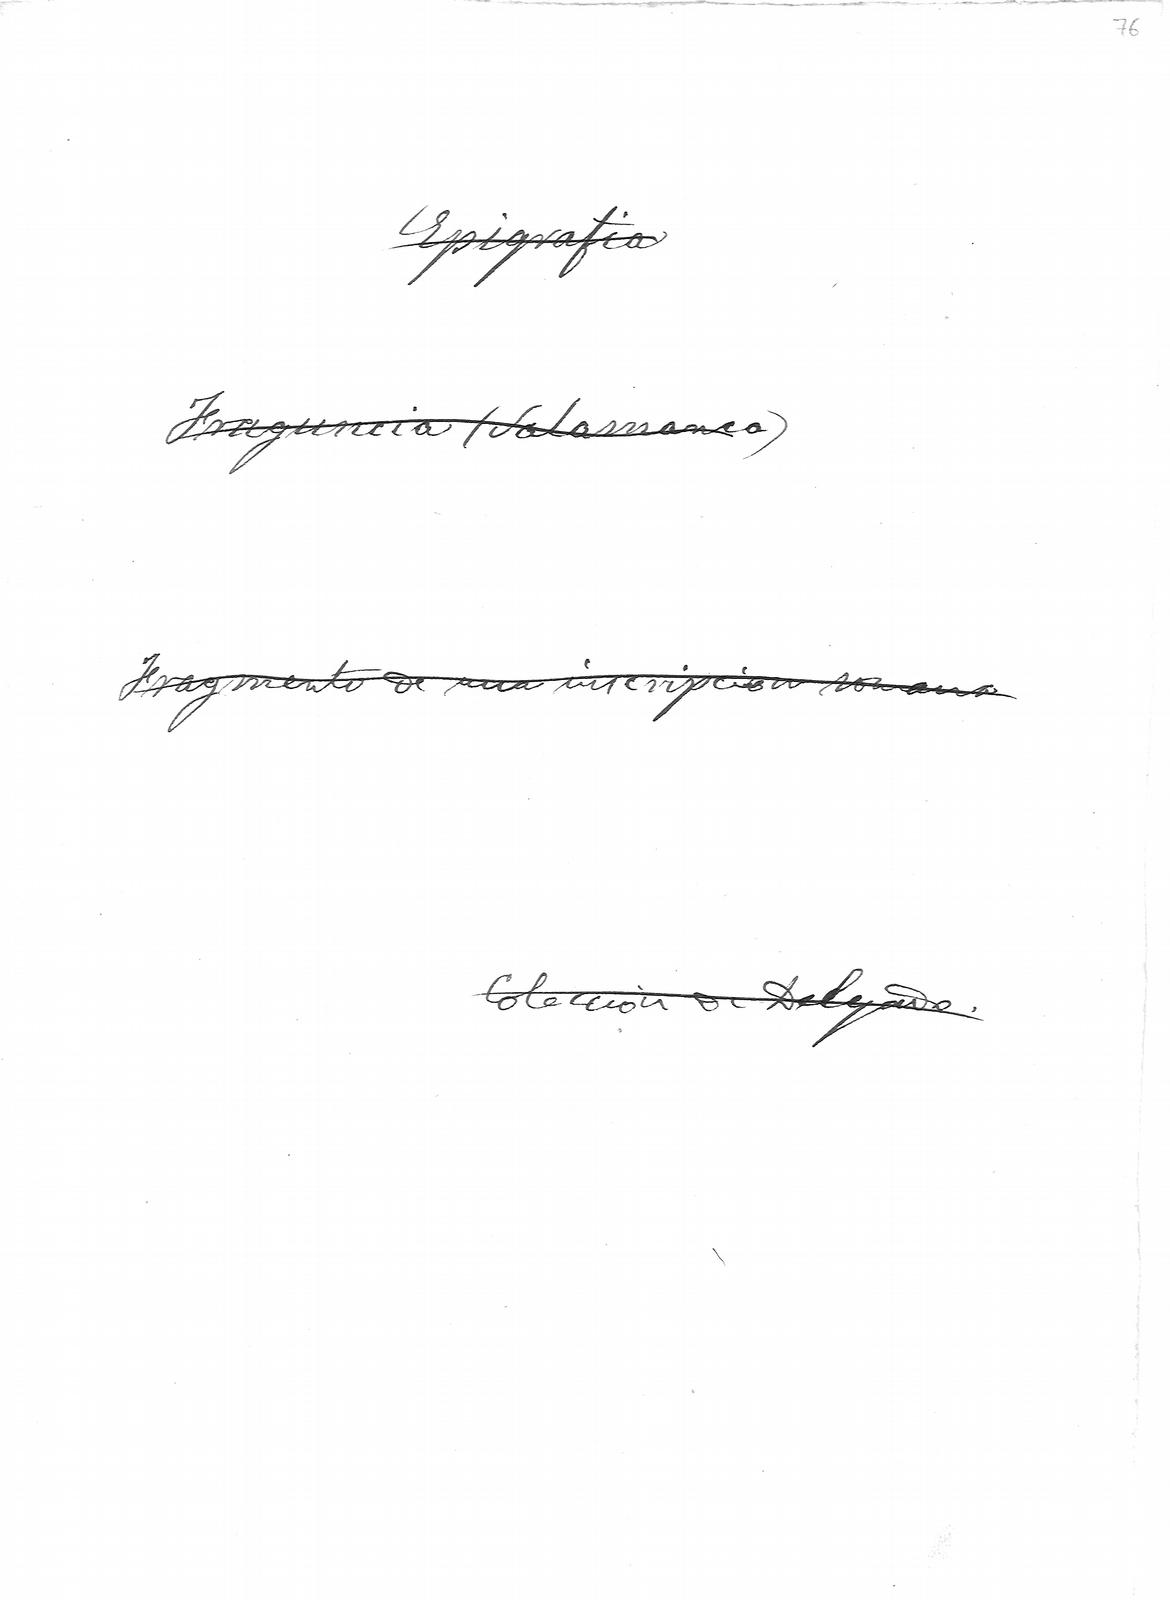 76
Epigrafia
Fraguncia (Salamanca)
Fragmento de una inscripcion romana
Colección de Delgado.